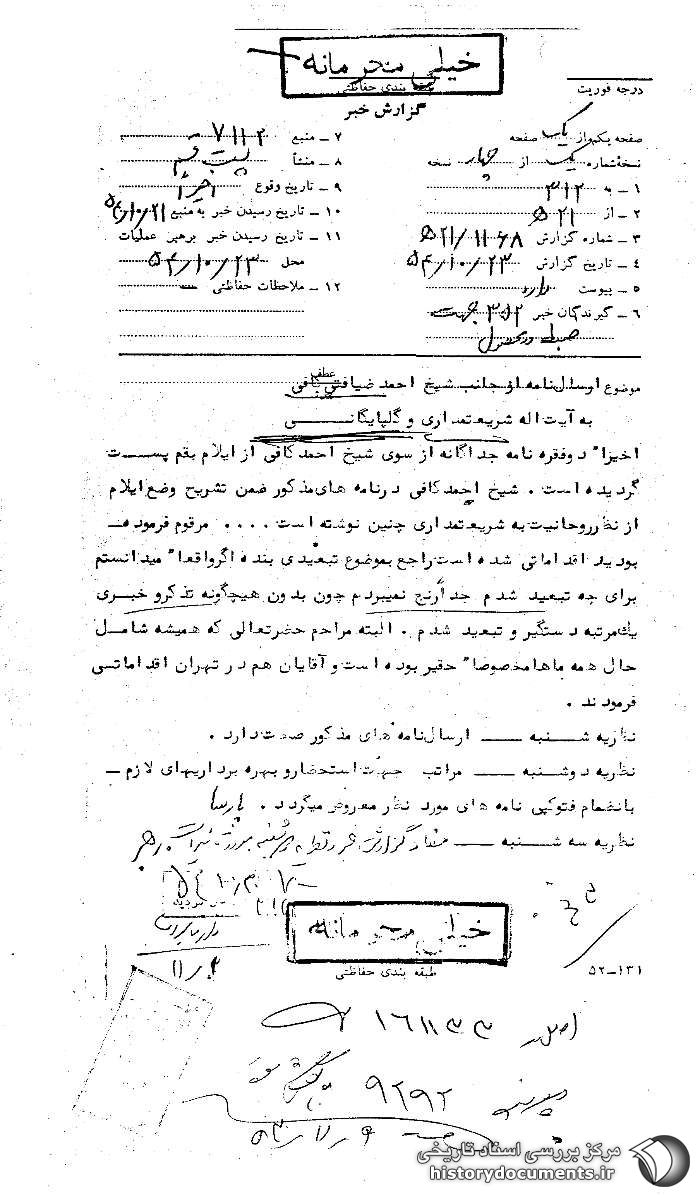 خیلی محرمانه
طبقه بندی حفاظتی
گزارش خبر
درجه فوریت
صفحه یکم از یک صفحه
نسخه شماره یک از چهار نسخه
۱ - به ۳۱۲
۲ - از ۵۲۱
۳ - شماره گزارش ۵۲۱/۱۱۶۸
۴ - تاریخ گزارش ۵۴/۱۰/۲۳
۵ - پیوست دارد
۶ - گیرندگان خبر ۳۱۲ جهت
ضبط در محصول
۷ - منبع ۷۱۱۲
۸ - منشأ پست قم
۹ - تاریخ وقوع اخیراً
۱۰ - تاریخ رسیدن خبر به منبع ۵۴/۱۰/۲۱
۱۱ - تاریخ رسیدن خبر برهبر عملیات
محل ۵۴/۱۰/۲۳
۱۲ - ملاحظات حفاظتی
موضوع ارسال نامه از جانب شیخ احمد ضیافتی کافی
عطف
به آیت اله شریعتمداری و گلپایگانی
اخیرا" دوفقره نامه جداگانه از سوی شیخ احمد کافی از ایلام بقم پست
گردیده است . شیخ احمد کافی درنامه های مذکور ضمن تشریح وضع ایلام
از نظر روحانیت به شریعتمداری چنین نوشته است .... مرقوم فرموده
بودید اقداماتی شده است راجع بموضوع تبعیدی بنده اگر واقعا" میدانستم
برای چه تبعید شدم جدا رنج نمیبردم چون بدون هیچگونه تذکر و خبری
یک مرتبه دستگیر و تبعید شدم . البته مراحم حضرتعالی که همیشه شامل
حال همه ماها مخصوصا" حقیر بوده است و آقایان هم در تهران اقداماتی
فرمودند .
نظریه شنبه — ارسال نامه های مذکور صحت دارد .
نظریه دوشنبه — مراتب جهت استحضار و بهره برداریهای لازم -
بانضمام فتوکپی نامه های مورد نظر معروض میگردد . پارسا
نظریه سه شنبه — مفاد گزارش خبر و نظریه
خیلی محرمانه
طبقه بندی حفاظتی
۵۲-۱۳۱
اصل ۱۶۱۱۳۳
۹۲۹۲
مرکز بررسی اسناد تاریخی
historydocuments.ir